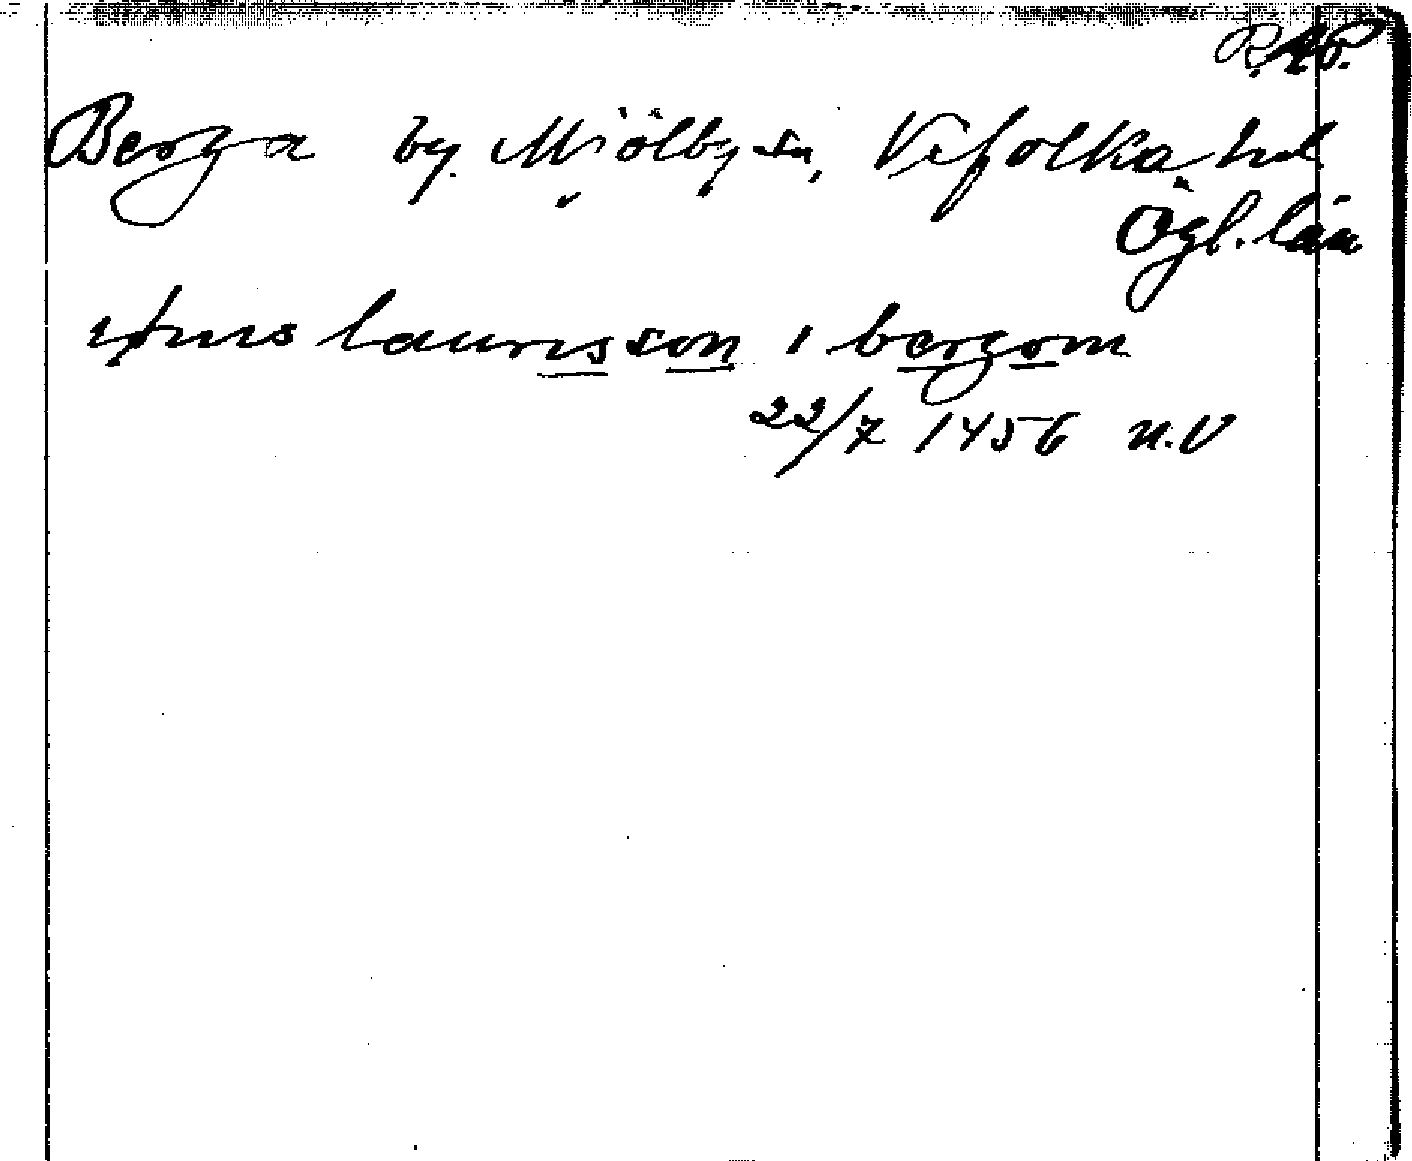 R.A.P.
Berga by. Mjölby sn, Vifolka hd
Ögl. län
laurisson i bergom
22/7 1456 n.V